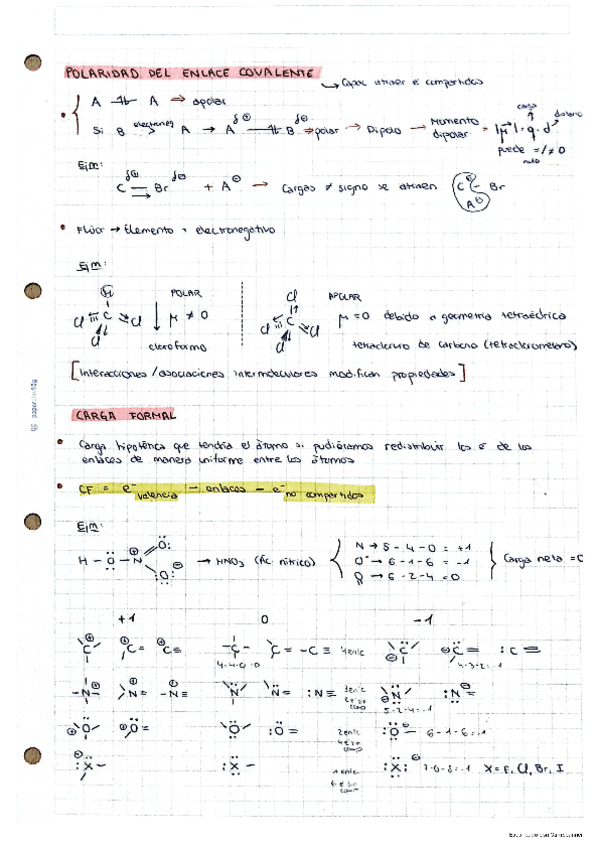 POLARIDAD DEL ENLACE COVALENTE
Capac. atraer e⁻ compartidos
A A → apolar
Si B electroneg A → A δ⊕ B δ⊖ → polar → Dipolo → Momento dipolar → |μ| = q · d
carga
distancia
puede = / ≠ 0
nulo
Ejm:
δ⊕ δ⊖
C Br + A⊖ → Cargas ≠ signo se atraen C⊕ – Br
A⊖
Flúor → Elemento + electronegativo
Ejm:
H
Cl C Cl
Cl
POLAR
μ ≠ 0
cloroformo
Cl
Cl C Cl
Cl
APOLAR
μ = 0 debido a geometría tetraédrica
tetracloruro de carbono (tetraclorometano)
[Interacciones / asociaciones intermoleculares modifican propiedades]
CARGA FORMAL
Carga hipotética que tendría el átomo si pudiéramos redistribuir los e⁻ de los
enlaces de manera uniforme entre los átomos
CF = e⁻ valencia - enlaces - e⁻ no compartidos
Ejm:
H - O - N O O → HNO₃ (Ác. nítrico)
N → 5 - 4 - 0 = +1
O⁻ → 6 - 1 - 6 = -1
O → 6 - 2 - 4 = 0
Carga neta = 0
+1 0 -1
C C= C≡ -C- C= -C≡ 4 enlc C C= :C≡
4-4-0=0
4-3-2=-1
-N- N= -N≡ N N= :N≡ 3 enlc N :N=
5-2-4=-1
O O= O :O= 2 enlc :O- 6-1-6=-1
:X- :X- 1 enlc :X: 7-0-8=-1 X = F, Cl, Br, I